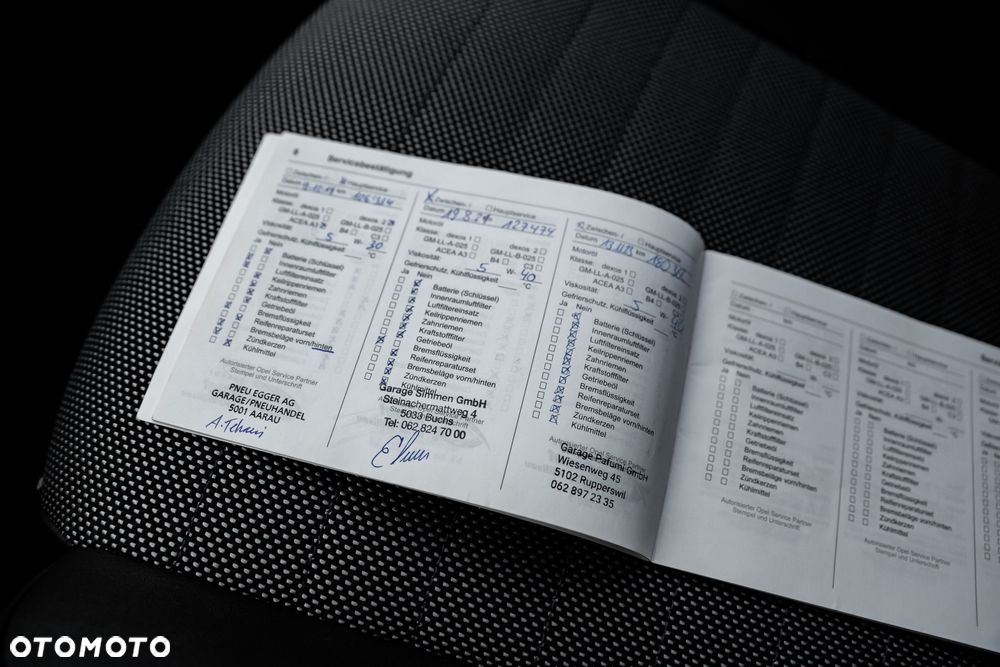 8 Servicebestätigung
Zwischen- / Hauptservice
Datum 9.12.19 km
Motoröl
Klasse: dexos 1 dexos 2
GM-LL-A-025 GM-LL-B-025
ACEA A3 B4 C3
Viskosität: 5 W- 30
Gefrierschutz, Kühlflüssigkeit °C
Ja Nein
Batterie (Schlüssel)
Innenraumluftfilter
Luftfiltereinsatz
Keilrippenriemen
Zahnriemen
Kraftstoffilter
Getriebeöl
Bremsflüssigkeit
Reifenreparaturset
Bremsbeläge vorn/hinten
Zündkerzen
Kühlmittel
Autorisierter Opel Service Partner
Stempel und Unterschrift
PNEU EGGER AG
GARAGE/PNEUHANDEL
5001 AARAU
Zwischen- / Hauptservice
Datum 19.8.21 127474
Motoröl
Klasse: dexos 1 dexos 2
GM-LL-A-025 GM-LL-B-025
ACEA A3 B4 C3
Viskosität: 5 W- 40
Gefrierschutz, Kühlflüssigkeit °C
Ja Nein
Batterie (Schlüssel)
Innenraumluftfilter
Luftfiltereinsatz
Keilrippenriemen
Zahnriemen
Kraftstoffilter
Getriebeöl
Bremsflüssigkeit
Reifenreparaturset
Bremsbeläge vorn/hinten
Zündkerzen
Kühlmittel
Garage Simmen GmbH
Steinachermattweg 4
5033 Buchs
Tel: 062 824 70 00
Zwischen- / Hauptservice
Datum km
Motoröl
Klasse: dexos 1 dexos 2
GM-LL-A-025 GM-LL-B-025
ACEA A3 B4 C3
Viskosität: 5 W-
Gefrierschutz, Kühlflüssigkeit °C
Ja Nein
Batterie (Schlüssel)
Innenraumluftfilter
Luftfiltereinsatz
Keilrippenriemen
Zahnriemen
Kraftstoffilter
Getriebeöl
Bremsflüssigkeit
Reifenreparaturset
Bremsbeläge vorn/hinten
Zündkerzen
Kühlmittel
Autorisierter Opel Service Partner
Garage Pafumi GmbH
Wiesenweg 45
5102 Rupperswil
062 897 23 35
Zwischen- / Hauptservice
Datum km
Motoröl
Klasse: dexos 1 dexos 2
GM-LL-A-025 GM-LL-B-025
ACEA A3 B4 C3
Viskosität: W-
Gefrierschutz, Kühlflüssigkeit °C
Ja Nein
Batterie (Schlüssel)
Innenraumluftfilter
Luftfiltereinsatz
Keilrippenriemen
Zahnriemen
Kraftstoffilter
Getriebeöl
Bremsflüssigkeit
Reifenreparaturset
Bremsbeläge vorn/hinten
Zündkerzen
Kühlmittel
Autorisierter Opel Service Partner
Stempel und Unterschrift
Batterie (Schlüssel)
Innenraumluftfilter
Luftfiltereinsatz
Keilrippenriemen
Zahnriemen
Kraftstoffilter
Getriebeöl
Bremsflüssigkeit
Reifenreparaturset
Bremsbeläge vorn/hinten
Zündkerzen
Kühlmittel
Autorisierter Opel Service Partner
Stempel und Unterschrift
OTOMOTO